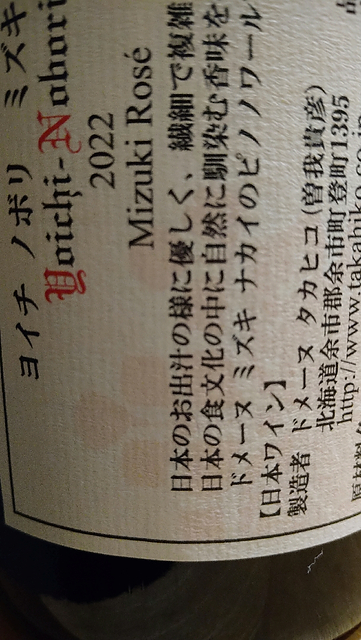 ヨイチ ノボリ ミズキ
Yoichi-Nobori
2022
Mizuki Rosé
日本のお出汁の様に優しく、繊細で複雑
日本の食文化の中に自然に馴染む香味を
ドメーヌ ミズキ ナカイのピノノワール
【日本ワイン】
製造者 ドメーヌ タカヒコ (曽我貴彦)
北海道余市郡余市町登町1395
http://www.takahiko.co
原材料